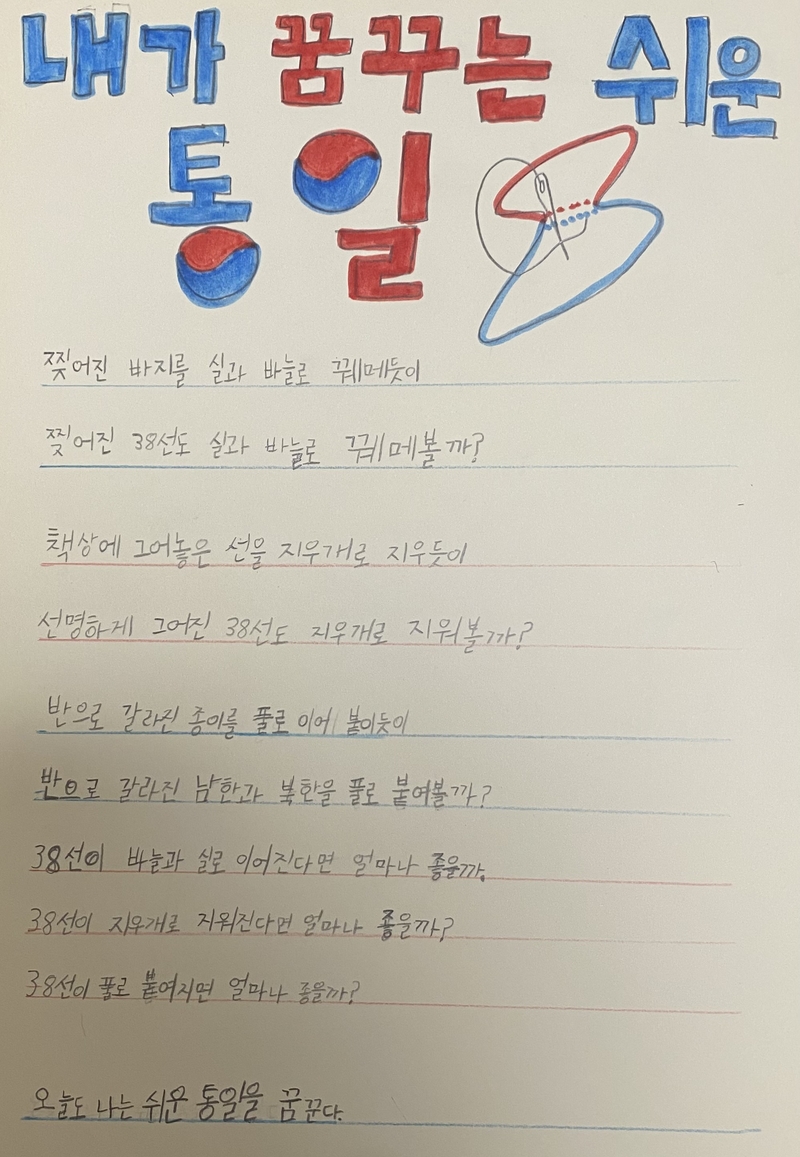 내가 꿈꾸는 쉬운
통일
찢어진 바지를 실과 바늘로 꿰메듯이
찢어진 38선도 실과 바늘로 꿰메볼까?
책상에 그어놓은 선을 지우개로 지우듯이
선명하게 그어진 38선도 지우개로 지워볼까?
반으로 갈라진 종이를 풀로 이어 붙이듯이
반으로 갈라진 남한과 북한을 풀로 붙여볼까?
38선이 바늘과 실로 이어진다면 얼마나 좋을까.
38선이 지우개로 지워진다면 얼마나 좋을까?
38선이 풀로 붙여지면 얼마나 좋을까?
오늘도 나는 쉬운 통일을 꿈꾼다.